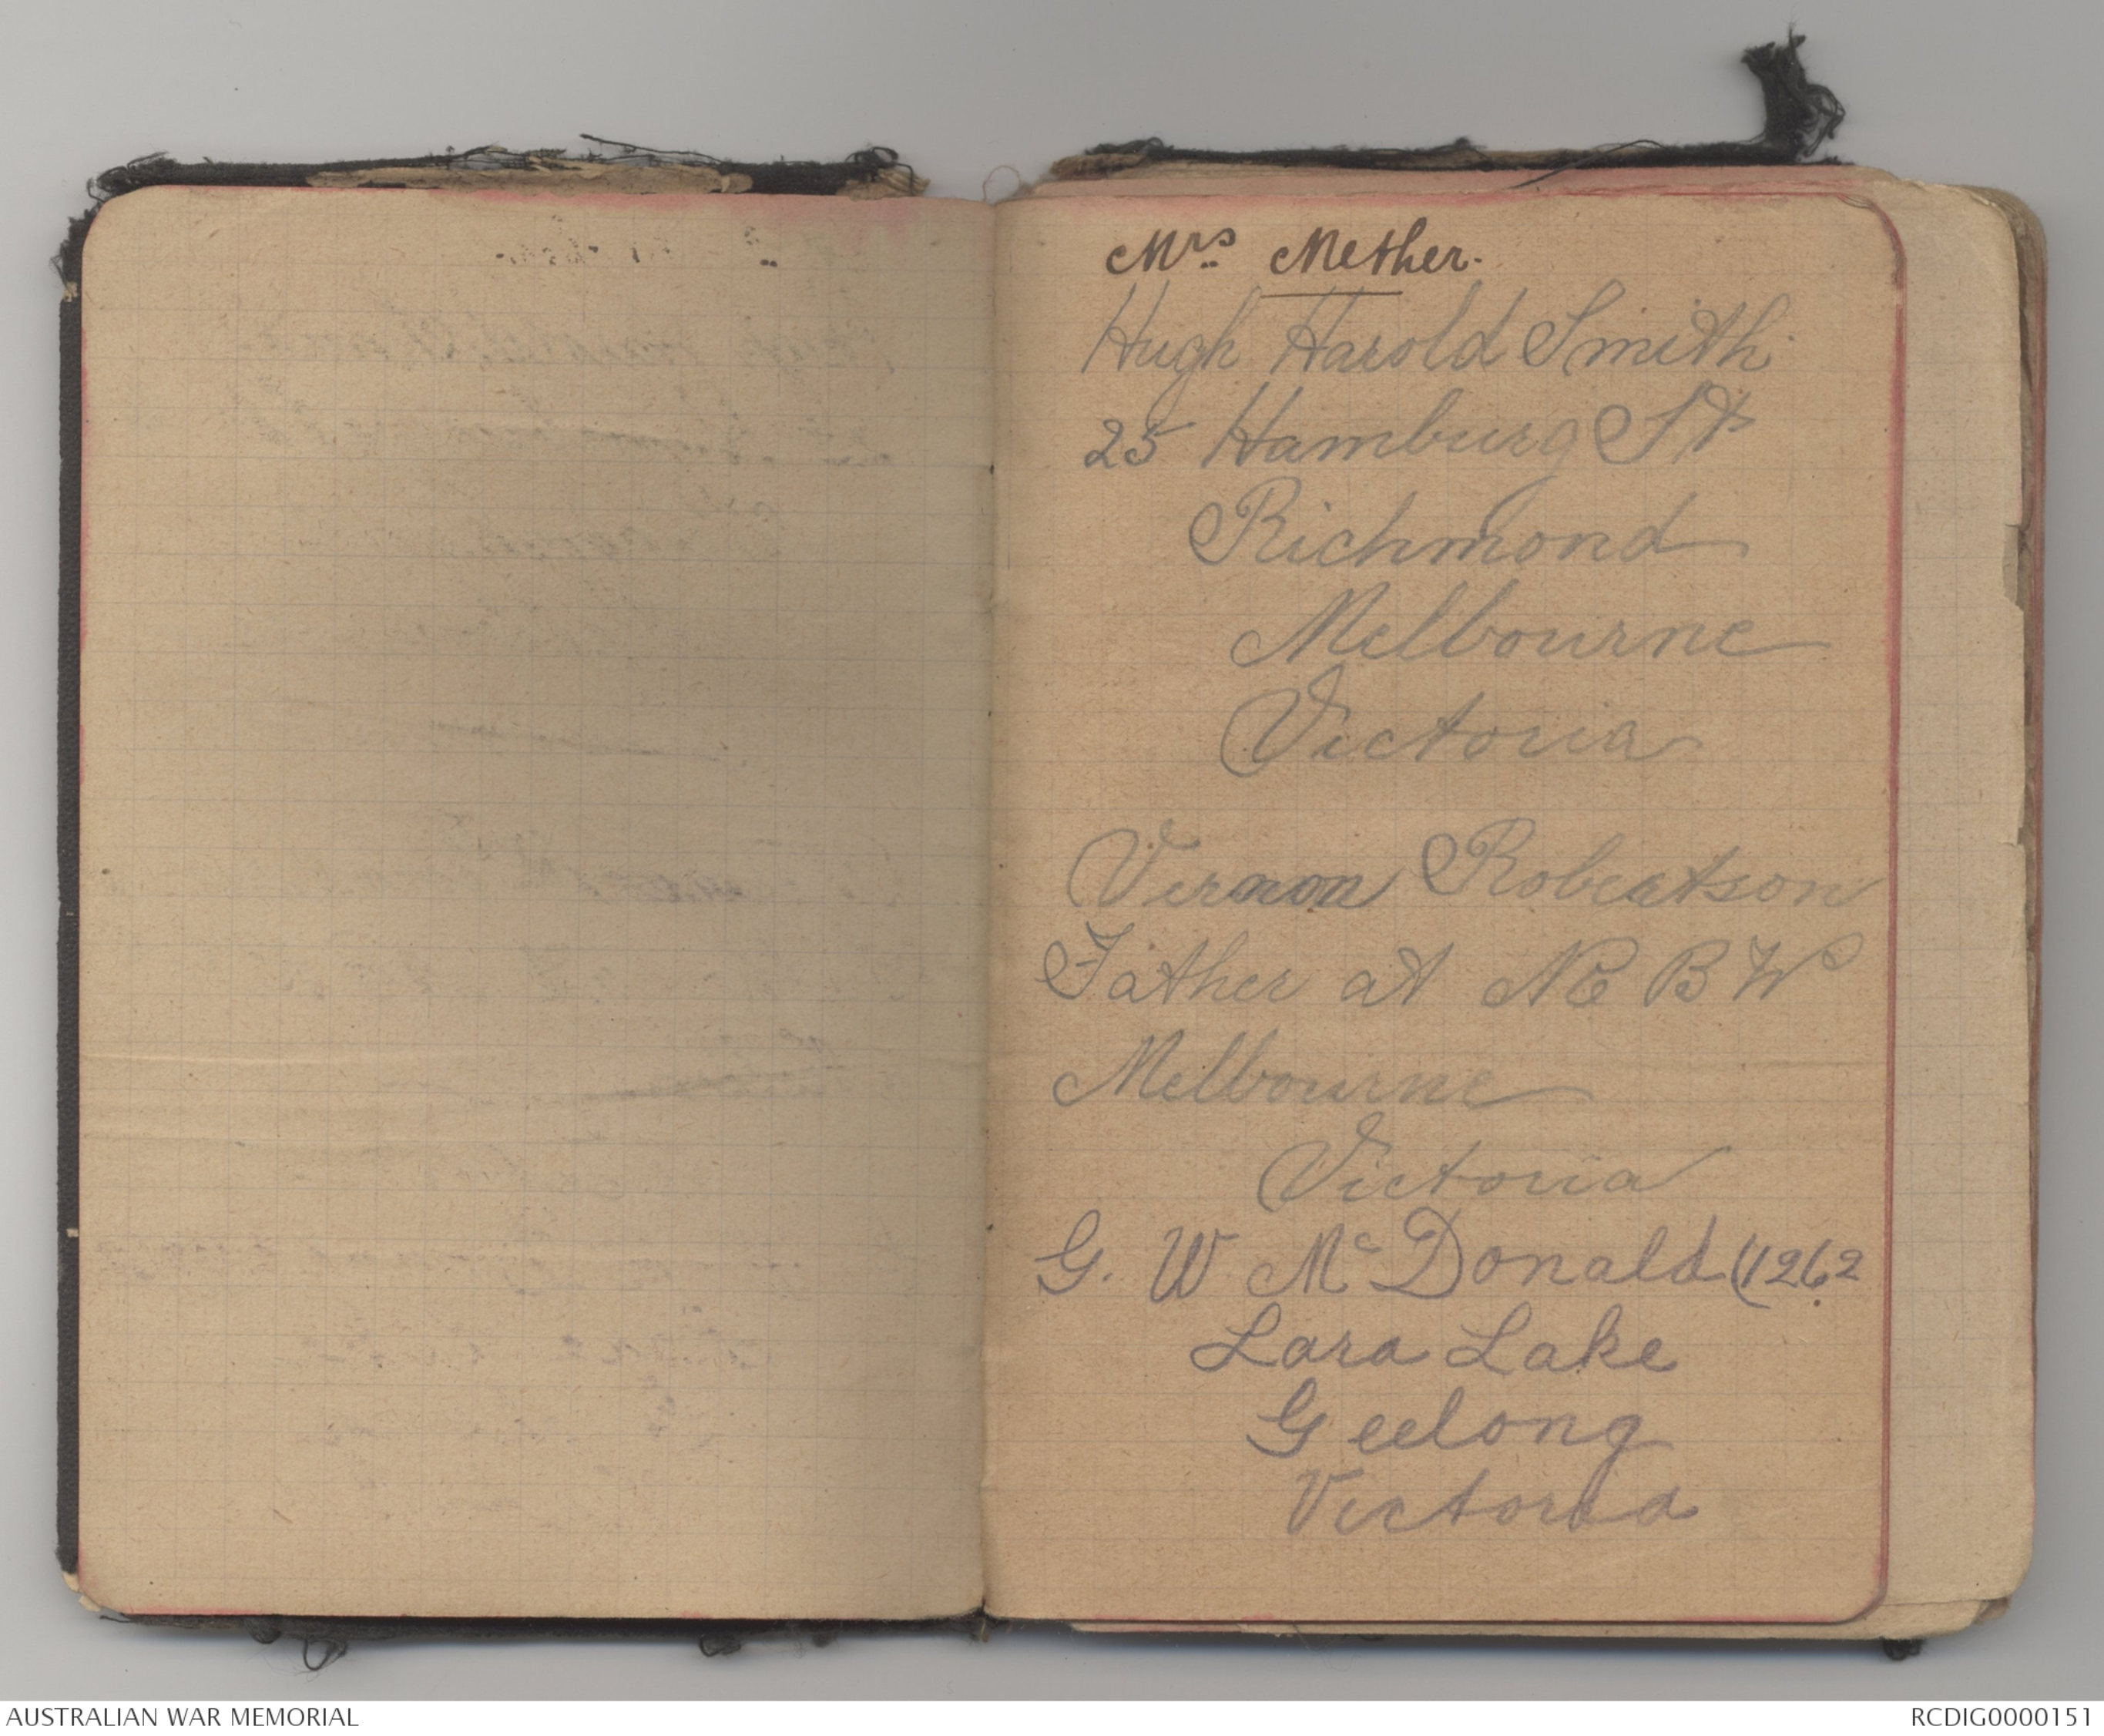 Mrs Mether.
Hugh Harold Smith
25 Hamburg St
Richmond
Melbourne
Victoria
Vernon Robertson
Father at N B W
Melbourne
Victoria
G. W Mc Donald (1262
Lara Lake
Geelong
Victoria
AUSTRALIAN WAR MEMORIAL
RCDIG0000151